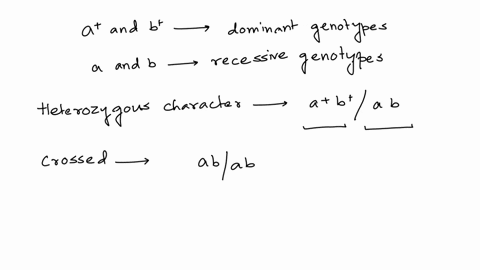 a⁺ and b⁺ → dominant genotypes
a and b → recessive genotypes
Heterozygous character → a+b⁺/ab
crossed → ab/ab